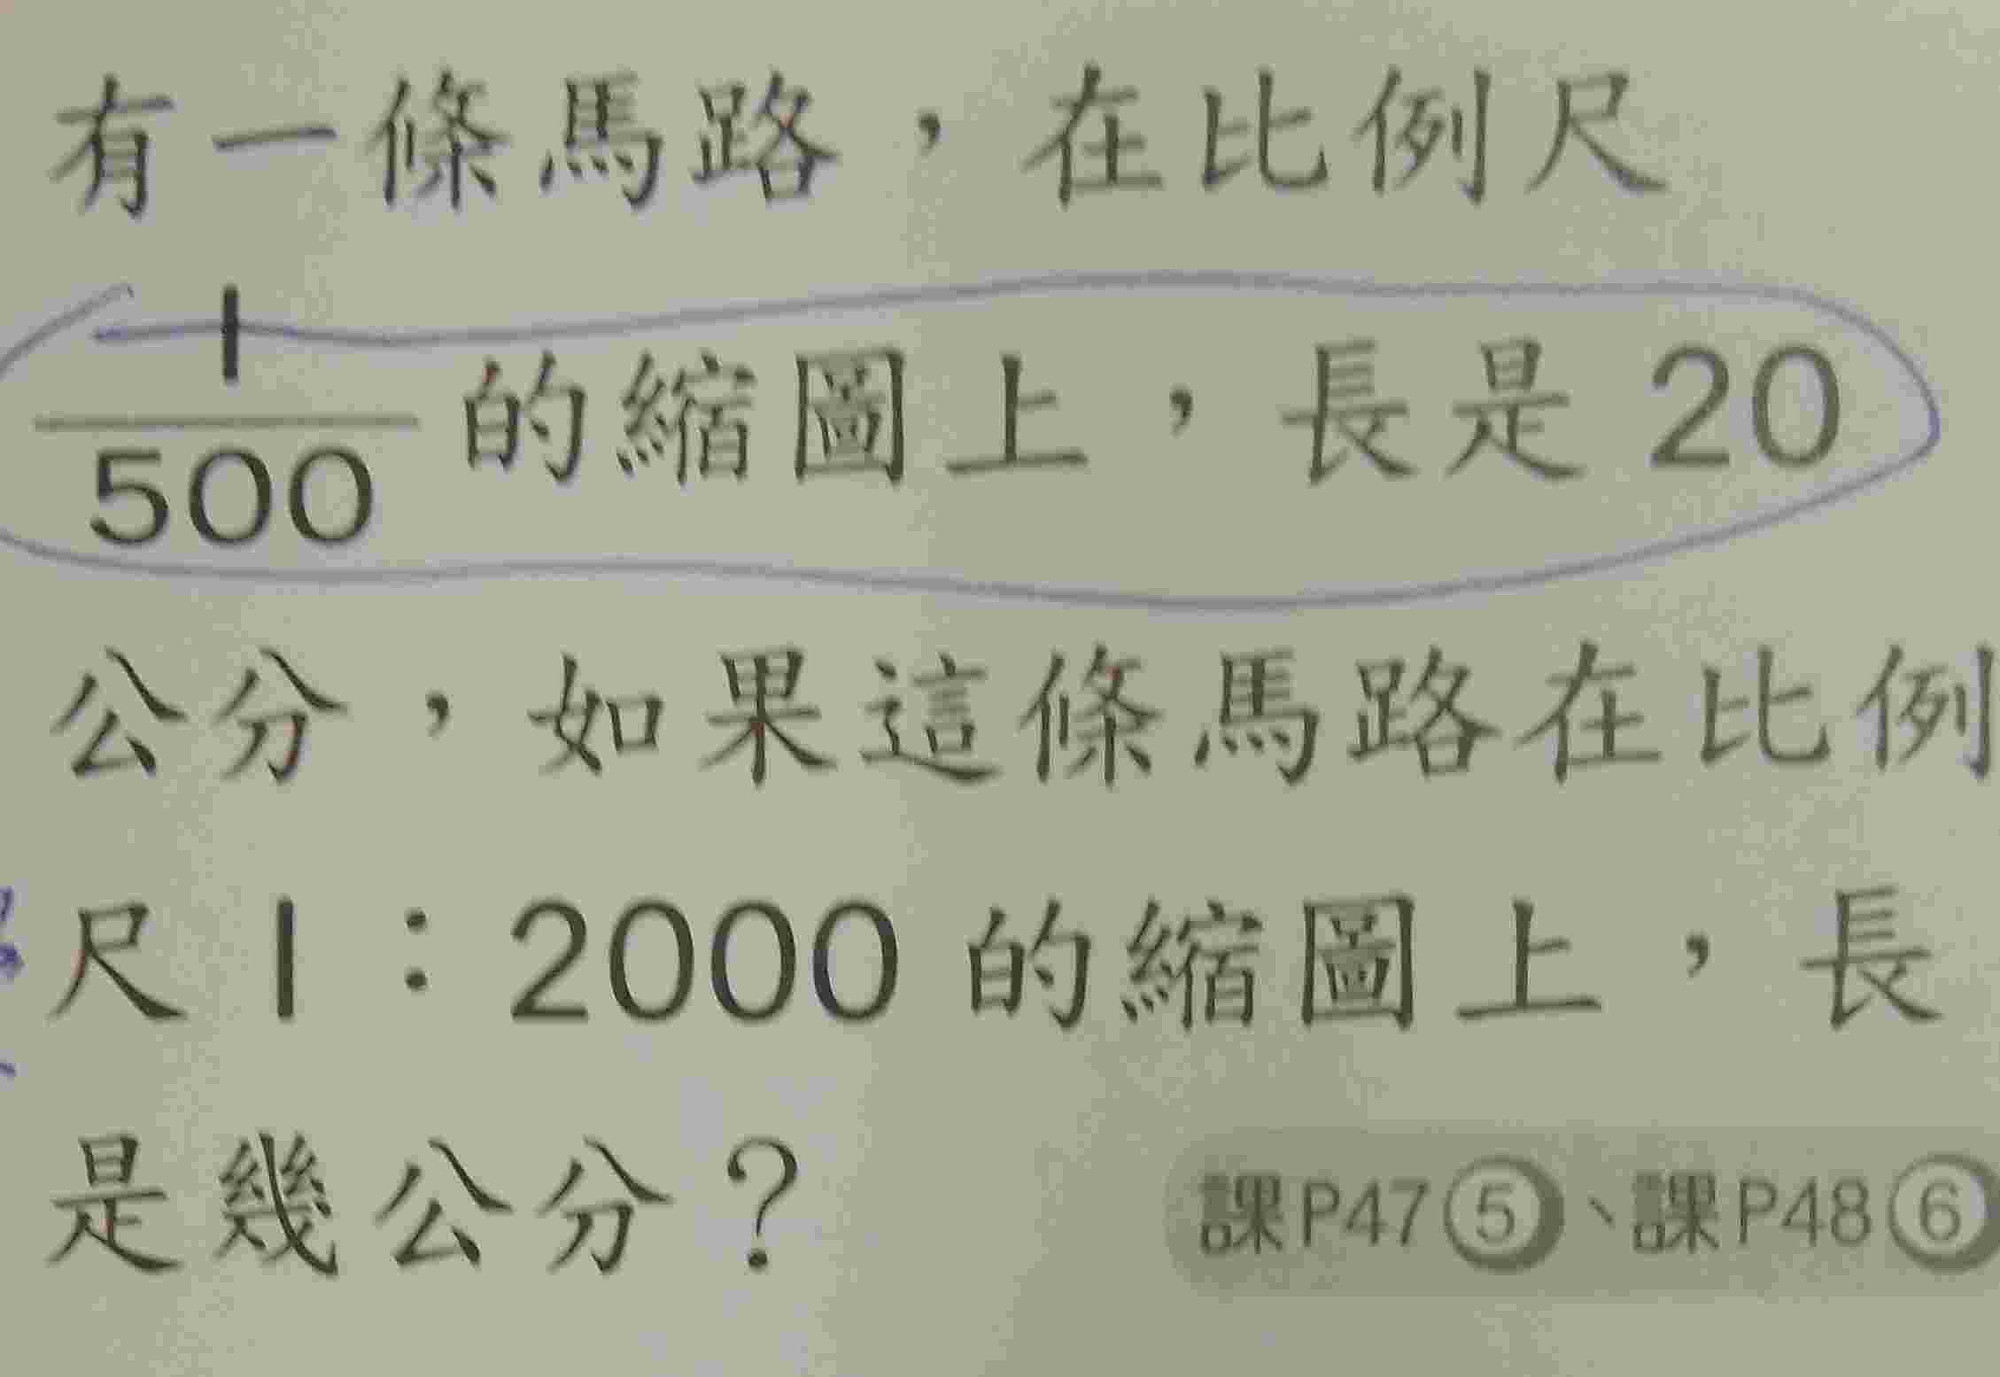 有一條馬路，在比例尺
1/500 的縮圖上，長是 20
公分，如果這條馬路在比例
尺 1：2000 的縮圖上，長
是幾公分？ 課P47⑤、課P48⑥